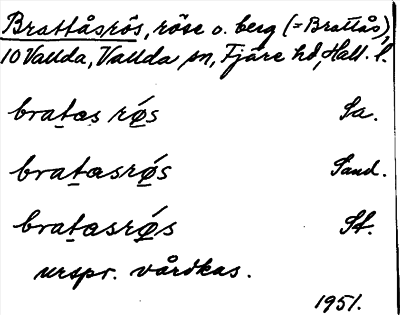 Brattåsrös, röse o. berg (=Brattås),
10 Vallda, Vallda sn, Fjäre hd, Hall. l.
bratas røs Sa.
bratasrøs Sand.
bratasrøs St.
urspr. vårdkas.
1951.